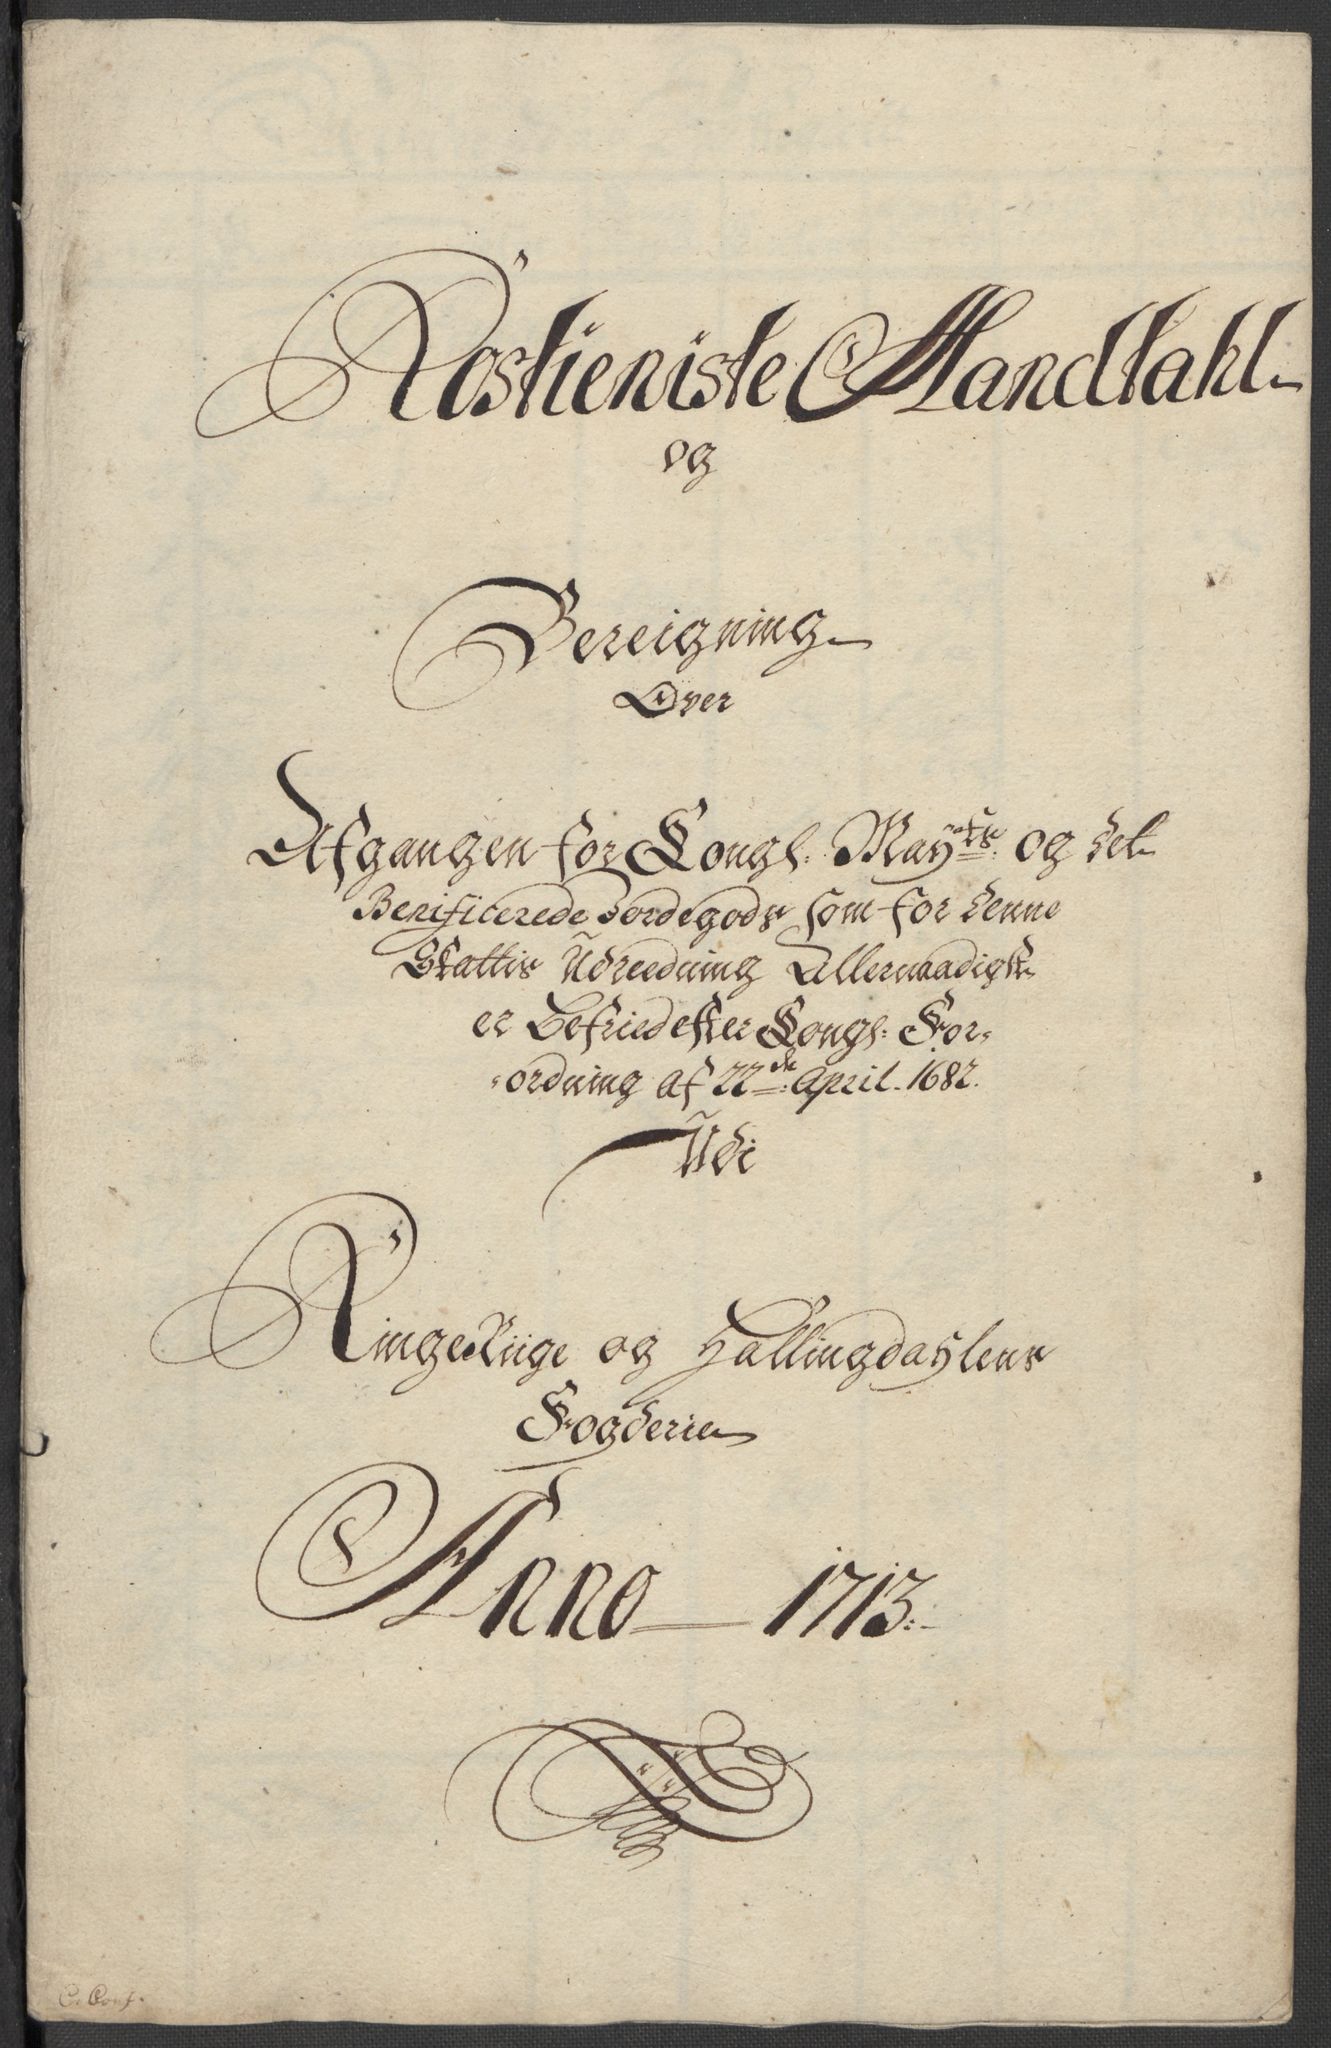 Rostieniste Mandtahl
og
Bereigning
Over
Afgangen for Kongl: Mayts: og det
Benificerede Jordegods som for denne
Skattis Udreedning Allernaadigst
er Befried efter Kongl: For-
-ordning af 22de: April. 1682.
Udi
RingeRiige og Hallingdahlens
Fogderie
Anno 1713.